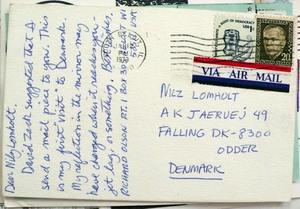 Dear Niels Lomholt,
David Zack suggested that I
send a mail piece to you. This
is my "first visit" to Denmark.
My reflection in the mirror may
have changed when it reaches you -
jet lag, or something. Best wishes,
RICHARD OLSON RT. 1 BOX
VIA AIR MAIL
NILZ LOMHOLT
AK JAERVEJ 49
FALLING DK-8300
ODDER
DENMARK